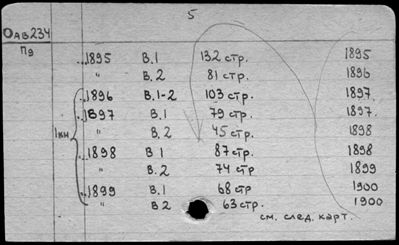 5
Оав234
П9
1895 В.1 132 стр. 1895
" В.2 81 стр. 1896
1896 В.1-2 103 стр. 1897.
1897 В.1 79 стр. 1897.
1кн " В.2 45 стр. 1898
1898 В 1 87 стр. 1898
" В.2 74 стр 1899
1899 В.1 68 стр 1900
" В2 63 стр. 1900
см. след. карт.